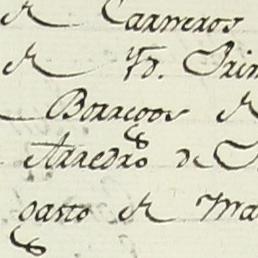 de Carneros
de Yd. Prim
Borregos de
Arredro de S
gasto de Ma